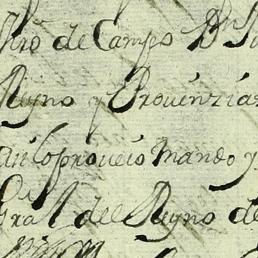 tro de Campo Dn Ju
Reyno y Provinzias
asi lo proveio mando y
Gral del Reyno de